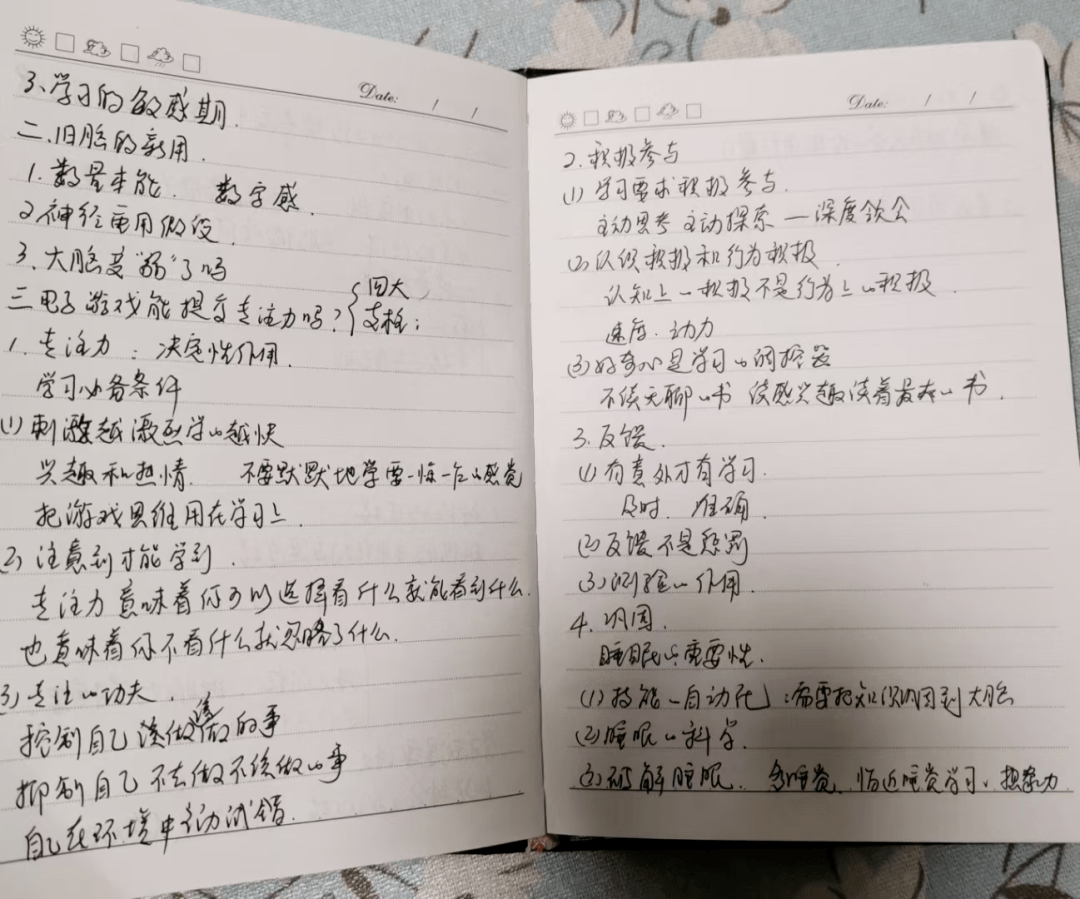 Date: / /
3、学习的敏感期.
二.旧脑的新用.
1.数量本能. 数字感.
2神经重用假设.
3.大脑变"弱"了吗
三电子游戏能提高专注力吗? 四大
支柱:
1.专注力: 决定性作用.
学习必备条件
(1)刺激越激烈学的越快
兴趣和热情. 不要默默地学要一惊一乍的感觉
把游戏思维用在学习上.
(2)注意到才能学到.
专注力意味着你可以选择看什么就能看到什么.
也意味着你不看什么就忽略了什么.
(3)专注的功夫.
控制自己该做的事
抑制自己不去做不该做的事
自己在环境中主动试错.
Date: / /
2.积极参与
(1)学习要求积极参与.
主动思考 主动探索—深度领会
(2)认知积极和行为积极.
认知上的积极不是行为上的积极.
速度.动力
(3)好奇心是学习的调控器
不读无聊的书 读感兴趣读着最有的书.
3.反馈.
(1)有意外才有学习.
及时. 准确.
(2)反馈不是惩罚
(3)测验的作用.
4.巩固.
睡眠的重要性.
(1)技能—自动化:需要把知识巩固到大脑
(2)睡眠的科学.
(3)破解睡眠. 多睡觉. 临近睡觉学习、想象力.